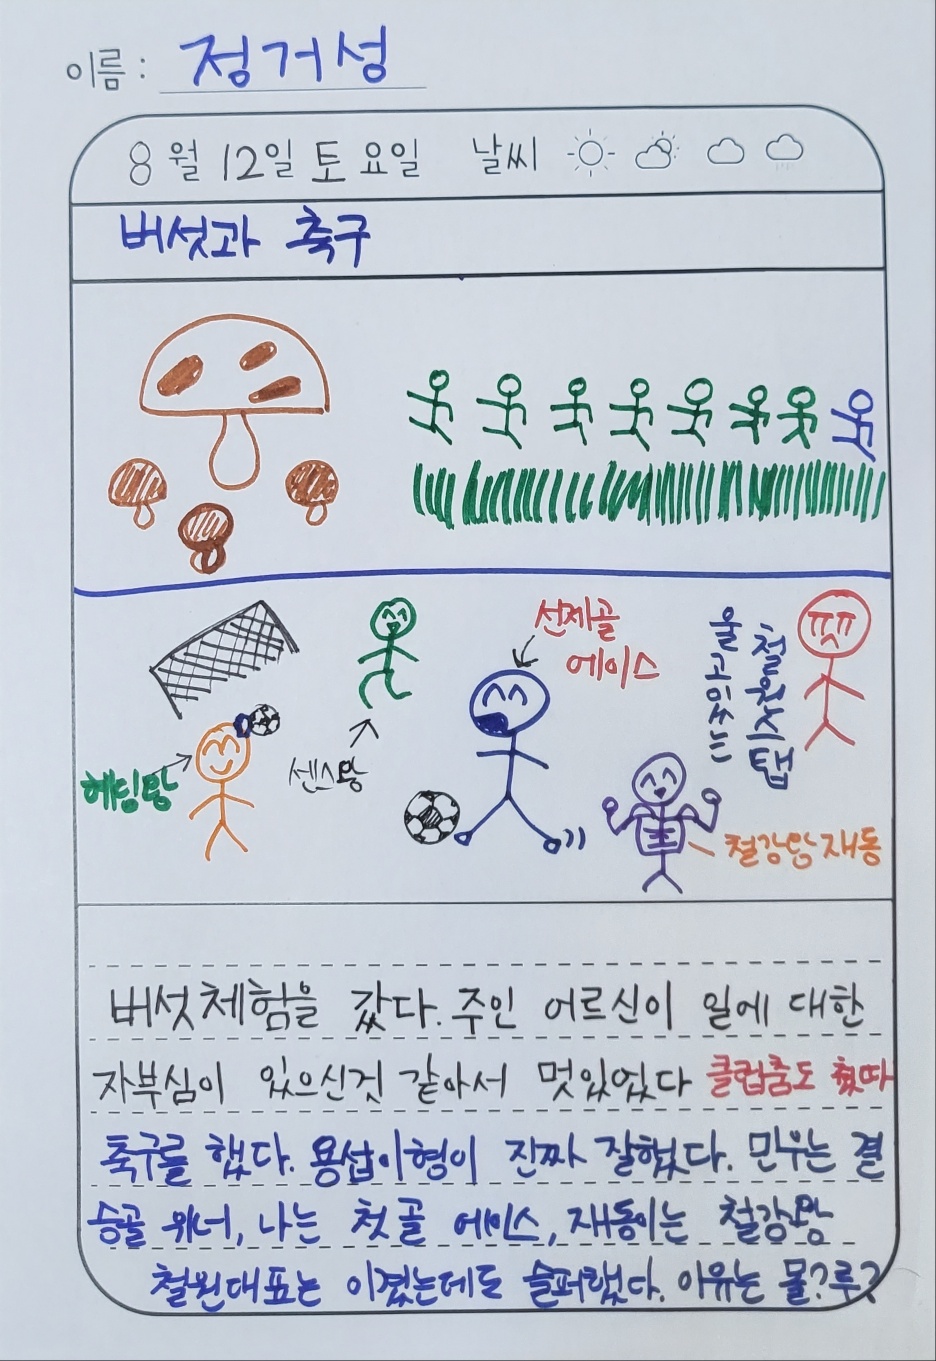 이름 : 정거성
8월 12일 토요일 날씨
버섯과 축구
선제골
에이스
철원스탭
울고있는
헤딩왕
센스왕
철강왕 재동
버섯체험을 갔다. 주인 어르신이 일에 대한
자부심이 있으신것 같아서 멋있었다 클럽춤도 췄따
축구를 했다. 용섭이형이 진짜 잘했다. 민우는 결
승골 위너, 나는 첫골 에이스, 재동이는 철강왕
철원대표는 이겼는데도 슬퍼했다. 이유는 물?루?